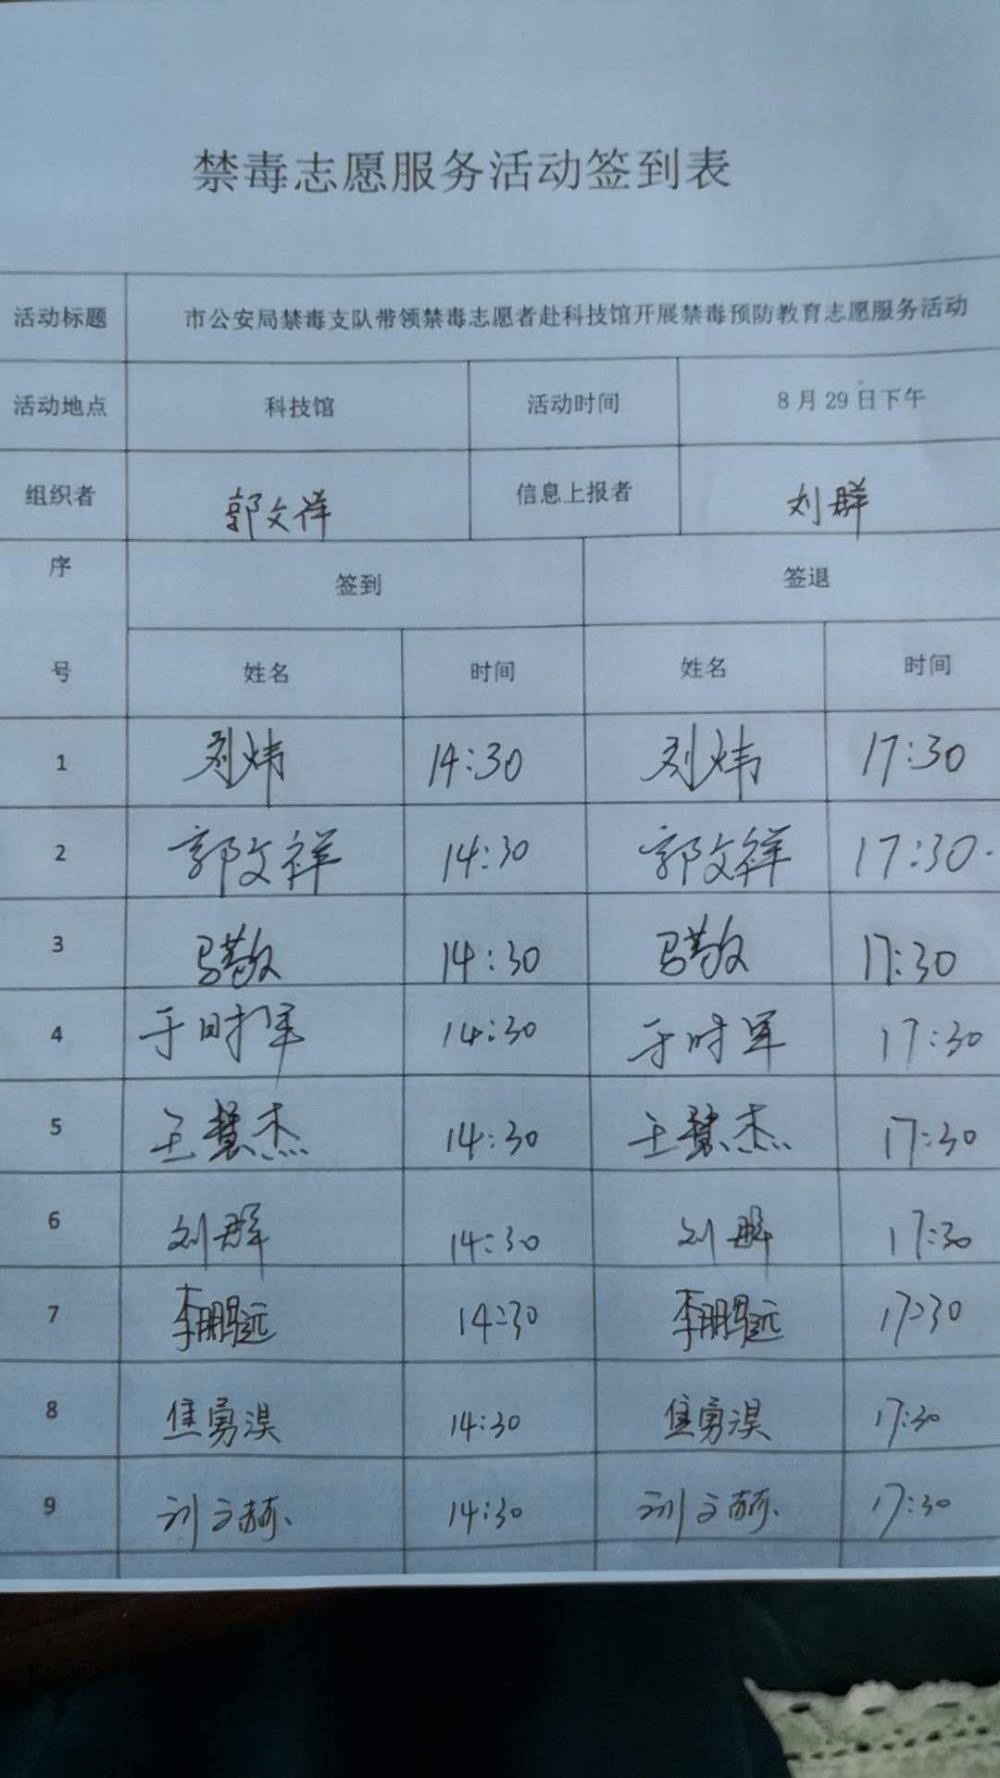 禁毒志愿服务活动签到表
活动标题 市公安局禁毒支队带领禁毒志愿者赴科技馆开展禁毒预防教育志愿服务活动
活动地点 科技馆 活动时间 8月29日下午
组织者 郭文祥 信息上报者 刘群
序号 签到 签退
姓名 时间 姓名 时间
1 刘炜 14:30 刘炜 17:30
2 郭文祥 14:30 郭文祥 17:30.
3 马敬 14:30 马敬 17:30
4 于时军 14:30 于时军 17:30
5 王慧杰 14:30 王慧杰 17:30
6 刘群 14:30 刘群 17:30
7 李鹏远 14:30 李鹏远 17:30
8 焦勇淏 14:30 焦勇淏 17:30
9 刘文赫 14:30 刘文赫 17:30